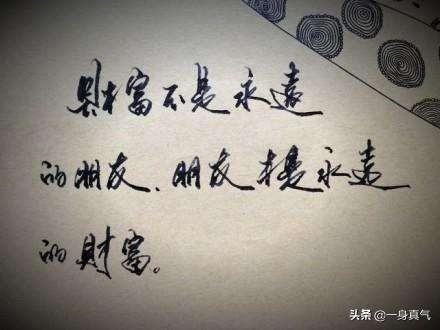 财富不是永远
的朋友、朋友才是永远
的财富。
头条@一身真气